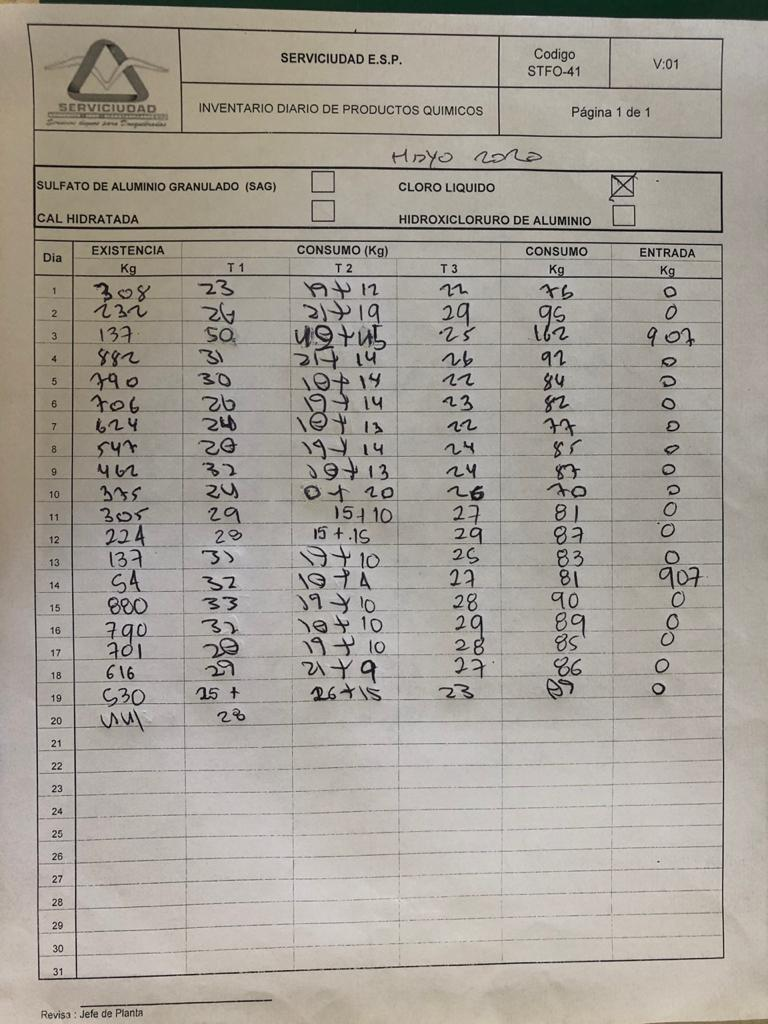 SERVICIUDAD
SERVICIUDAD E.S.P.
Codigo
STFO-41
V:01
INVENTARIO DIARIO DE PRODUCTOS QUIMICOS
Página 1 de 1
Mayo 2020
SULFATO DE ALUMINIO GRANULADO (SAG)
CLORO LIQUIDO X
CAL HIDRATADA
HIDROXICLORURO DE ALUMINIO
Dia EXISTENCIA CONSUMO (Kg) CONSUMO ENTRADA
Kg T 1 T 2 T 3 Kg Kg
1 308 23 19+12 22 76 0
2 232 26 21+19 29 95 0
3 137 50 +45 25 162 907
4 882 31 21+14 26 92 0
5 790 30 18+14 22 84 0
6 706 26 19+14 23 82 0
7 624 24 18+13 22 77 0
8 547 28 19+14 24 85 0
9 462 32 18+13 24 87 0
10 375 24 0+20 26 70 0
11 305 29 15+10 27 81 0
12 224 28 15+15 29 87 0
13 137 31 17+10 25 83 0
14 54 32 18+4 27 81 907
15 880 33 19+10 28 90 0
16 790 32 18+10 29 89 0
17 701 28 19+10 28 85 0
18 616 29 21+9 27 86 0
19 530 25+ 26+15 23 89 0
20 441 28
21
22
23
24
25
26
27
28
29
30
31
Revisa : Jefe de Planta